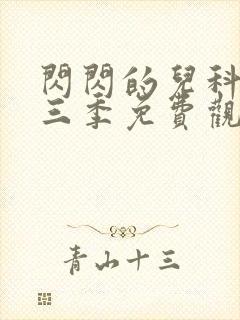 閃閃的兒科
三季免費觀
青山十三